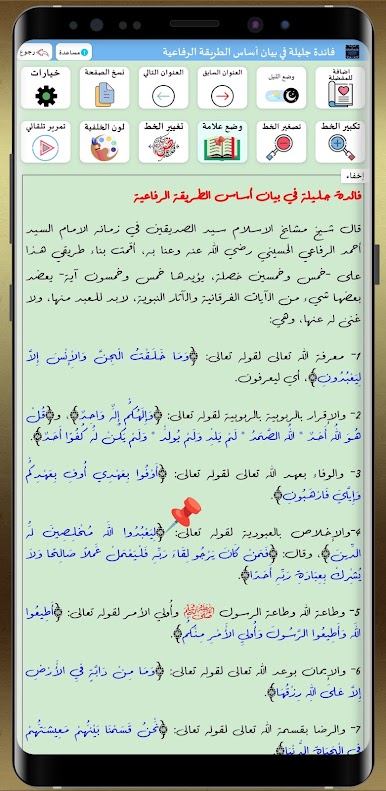 فائدة جليلة في بيان أساس الطريقة الرفاعية
مساعدة
رجوع
اضافة للمفضلة
وضع الليل
العنوان السابق
العنوان التالي
نسخ الصفحة
خيارات
تكبير الخط
تصغير الخط
وضع علامة
تغيير الخط
لون الخلفية
تمرير تلقائي
إخفاء
فائدة جليلة في بيان أساس الطريقة الرفاعية
قال شيخ مشايخ الاسلام سيد الصديقين في زمانه الامام السيد
أحمد الرفاعي الحسيني رضي الله عنه وعنا به، أقمت بناء طريقي هذا
على -خمس وخمسين خصلة، يؤيدها خمس وخمسون آية- بعضد
بعضها شيء من الآيات الفرقانية والآثار النبوية، لابد للعبد منها، ولا
غنى له عنها، وهي:
1- معرفة الله تعالى لقوله تعالى: ﴿وَمَا خَلَقْتُ الْجِنَّ وَالْإِنْسَ إِلَّا
لِيَعْبُدُونِ﴾، أي ليعرفون.
2- والاقرار بالربوبية بالربوبية لقوله تعالى: ﴿وَإِلَهُكُمْ إِلَهٌ وَاحِدٌ﴾، و﴿قُلْ
هُوَ اللَّهُ أَحَدٌ * اللَّهُ الصَّمَدُ * لَمْ يَلِدْ وَلَمْ يُولَدْ * وَلَمْ يَكُنْ لَهُ كُفُوًا أَحَدٌ﴾.
3- والوفاء بعهد الله تعالى لقوله تعالى: ﴿أَوْفُوا بِعَهْدِي أُوفِ بِعَهْدِكُمْ
وَإِيَّايَ فَارْهَبُونِ﴾.
4-والإخلاص بالعبودية لقوله تعالى: ﴿لِيَعْبُدُوا اللَّهَ مُخْلِصِينَ لَهُ
الدِّينَ﴾، وقال: ﴿فَمَنْ كَانَ يَرْجُو لِقَاءَ رَبِّهِ فَلْيَعْمَلْ عَمَلًا صَالِحًا وَلَا
يُشْرِكْ بِعِبَادَةِ رَبِّهِ أَحَدًا﴾.
5- وطاعة الله وطاعة الرسول ﷺ وأولي الأمر لقوله تعالى: ﴿أَطِيعُوا
اللَّهَ وَأَطِيعُوا الرَّسُولَ وَأُولِي الْأَمْرِ مِنْكُمْ﴾.
6- والإيمان بوعد الله تعالى لقوله تعالى: ﴿وَمَا مِنْ دَابَّةٍ فِي الْأَرْضِ
إِلَّا عَلَى اللَّهِ رِزْقُهَا﴾.
7- والرضا بقسمة الله تعالى لقوله تعالى: ﴿نَحْنُ قَسَمْنَا بَيْنَهُمْ مَعِيشَتَهُمْ
فِي الْحَيَاةِ الدُّنْيَا﴾.